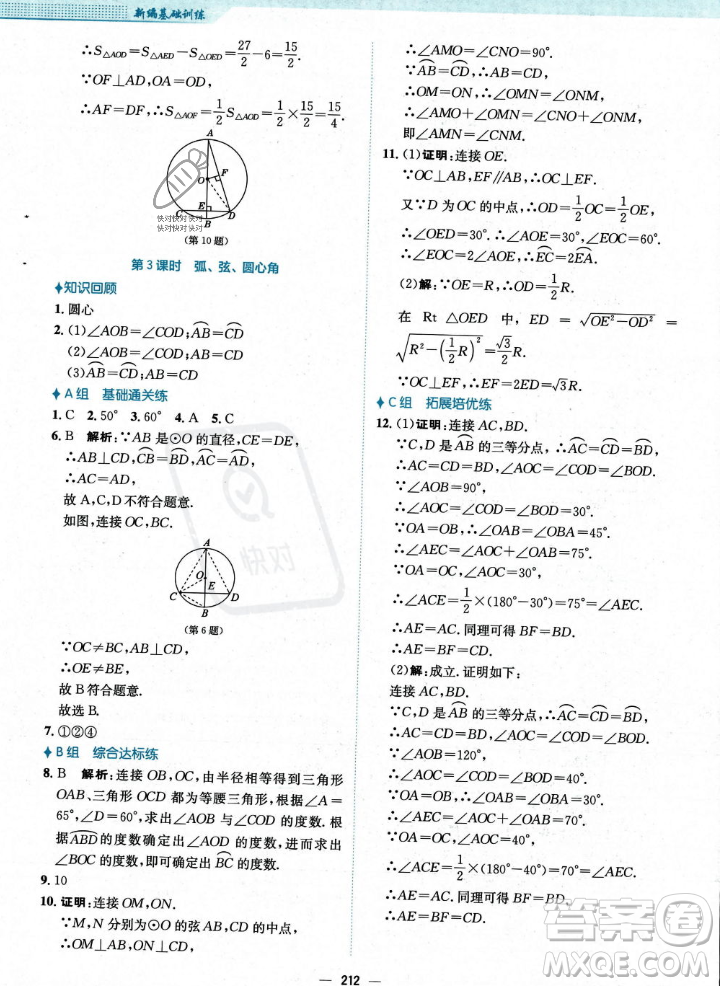 新编基础训练
∴S△AOD=S△AED−S△OED=27/2−6=15/2.
∵OF⊥AD,OA=OD,
∴AF=DF,∴S△AOF=1/2S△AOD=1/2×15/2=15/4.
A
O
F
E
C
D
B
快对快对快对
快对快对快对
(第10题)
第3课时 弧、弦、圆心角
知识回顾
1. 圆心
2. (1)∠AOB=∠COD;⌒AB=⌒CD
(2)∠AOB=∠COD;AB=CD
(3)⌒AB=⌒CD;AB=CD
A组 基础通关练
1. C 2. 50° 3. 60° 4. A 5. C
6. B 解析:∵AB是⊙O的直径,CE=DE,
∴AB⊥CD,⌒BC=⌒BD,⌒AC=⌒AD,
∴AC=AD,
故A,C,D不符合题意.
如图,连接OC,BC.
A
O
E
C
D
B
(第6题)
∵OC≠BC,AB⊥CD,
∴OE≠BE,
故B符合题意.
故选B.
7. ①②④
B组 综合达标练
8. B 解析:连接OB,OC,由半径相等得到三角形
OAB、三角形OCD都为等腰三角形,根据∠A=
65°,求出∠AOB与∠COD的度数.根
据⌒ABD的度数确定出∠AOD的度数,进而求出
∠BOC的度数,即可确定出⌒BC的度数.
9. 10
10. 证明:连接OM,ON.
∵M,N分别为⊙O的弦AB,CD的中点,
∴OM⊥AB,ON⊥CD,
∴∠AMO=∠CNO=90°.
∵⌒AB=⌒CD,∴AB=CD,
∴OM=ON,∴∠OMN=∠ONM,
∴∠AMO+∠OMN=∠CNO+∠ONM,
即∠AMN=∠CNM.
11. (1)证明:连接OE.
∵OC⊥AB,EF∥AB,∴OC⊥EF.
又∵D为OC的中点,∴OD=1/2OC=1/2OE,
∴∠OED=30°.∵EF∥AB,∴∠AOE=30°,
∴∠EOC=2∠AOE,∴⌒EC=2⌒EA.
(2)解:∵OE=R,∴OD=1/2R.
在Rt△OED中,ED=√(OE²−OD²)=
√(R²−(1/2R)²)=√3/2R.
∵OC⊥EF,∴EF=2ED=√3R.
C组 拓展培优练
12. (1)证明:连接AC,BD.
∵C,D是⌒AB的三等分点,∴⌒AC=⌒CD=⌒BD,
∴AC=CD=BD,∠AOC=∠COD=∠BOD.
∵∠AOB=90°,
∴∠AOC=∠COD=30°.
∵OA=OB,∴∠OAB=∠OBA=45°.
∴∠AEC=∠AOC+∠OAB=75°.
∵OA=OC,∠AOC=30°,
∴∠ACE=1/2×(180°−30°)=75°=∠AEC.
∴AE=AC.同理可得BF=BD.
∴AE=BF=CD.
(2)解:成立.证明如下:
连接AC,BD.
∵C,D是⌒AB的三等分点,∴⌒AC=⌒CD=⌒BD,
∴AC=CD=BD,∠AOC=∠COD=∠BOD.
∵∠AOB=120°,
∴∠AOC=∠COD=40°.
∵OA=OB,∴∠OAB=∠OBA=30°.
∴∠AEC=∠AOC+∠OAB=70°.
∵OA=OC,∠AOC=40°,
∴∠ACE=1/2×(180°−40°)=70°=∠AEC.
∴AE=AC.同理可得BF=BD.
∴AE=BF=CD.
快对
答案卷
MXQE.COM
212